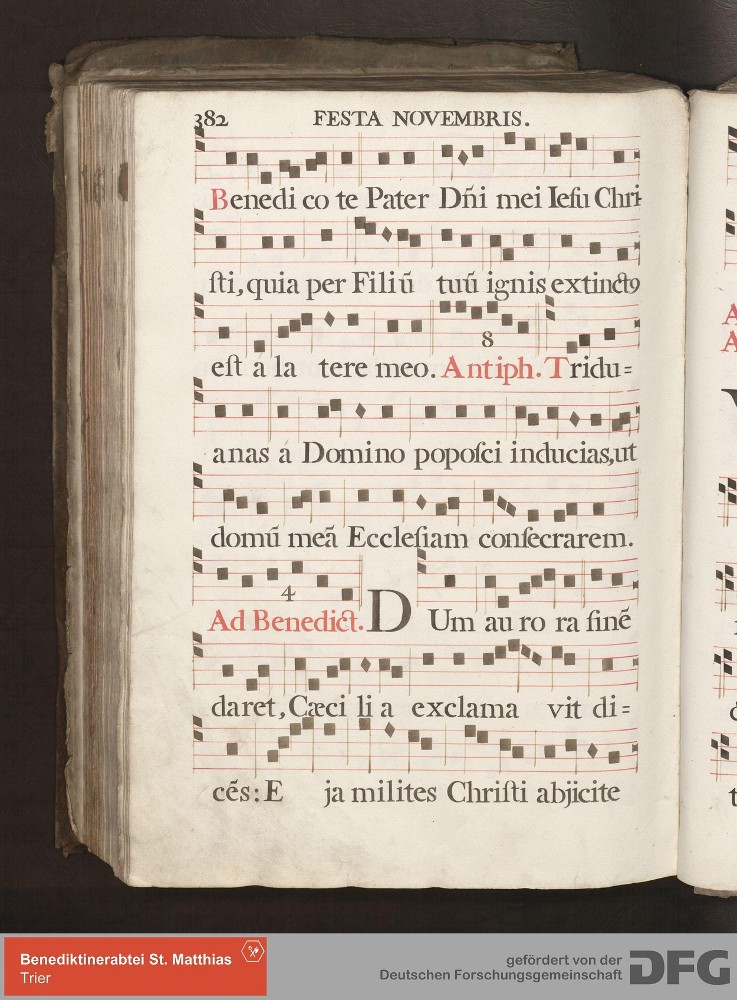 382 FESTA NOVEMBRIS.
Benedi co te Pater Dn̄i mei Ieſu Chri-
ſti, quia per Filiū tuū ignis extinctꝰ
eſt á la tere meo. Antiph. Tridu=
8
anas á Domino popoſci inducias, ut
domū meā Eccleſiam conſecrarem.
4
Ad Benedict. DUm au ro ra finē
daret, Cæci li a exclama vit di=
cēs: E ja milites Chriſti abjicite
Benediktinerabtei St. Matthias
Trier
gefördert von der
Deutschen Forschungsgemeinschaft
DFG